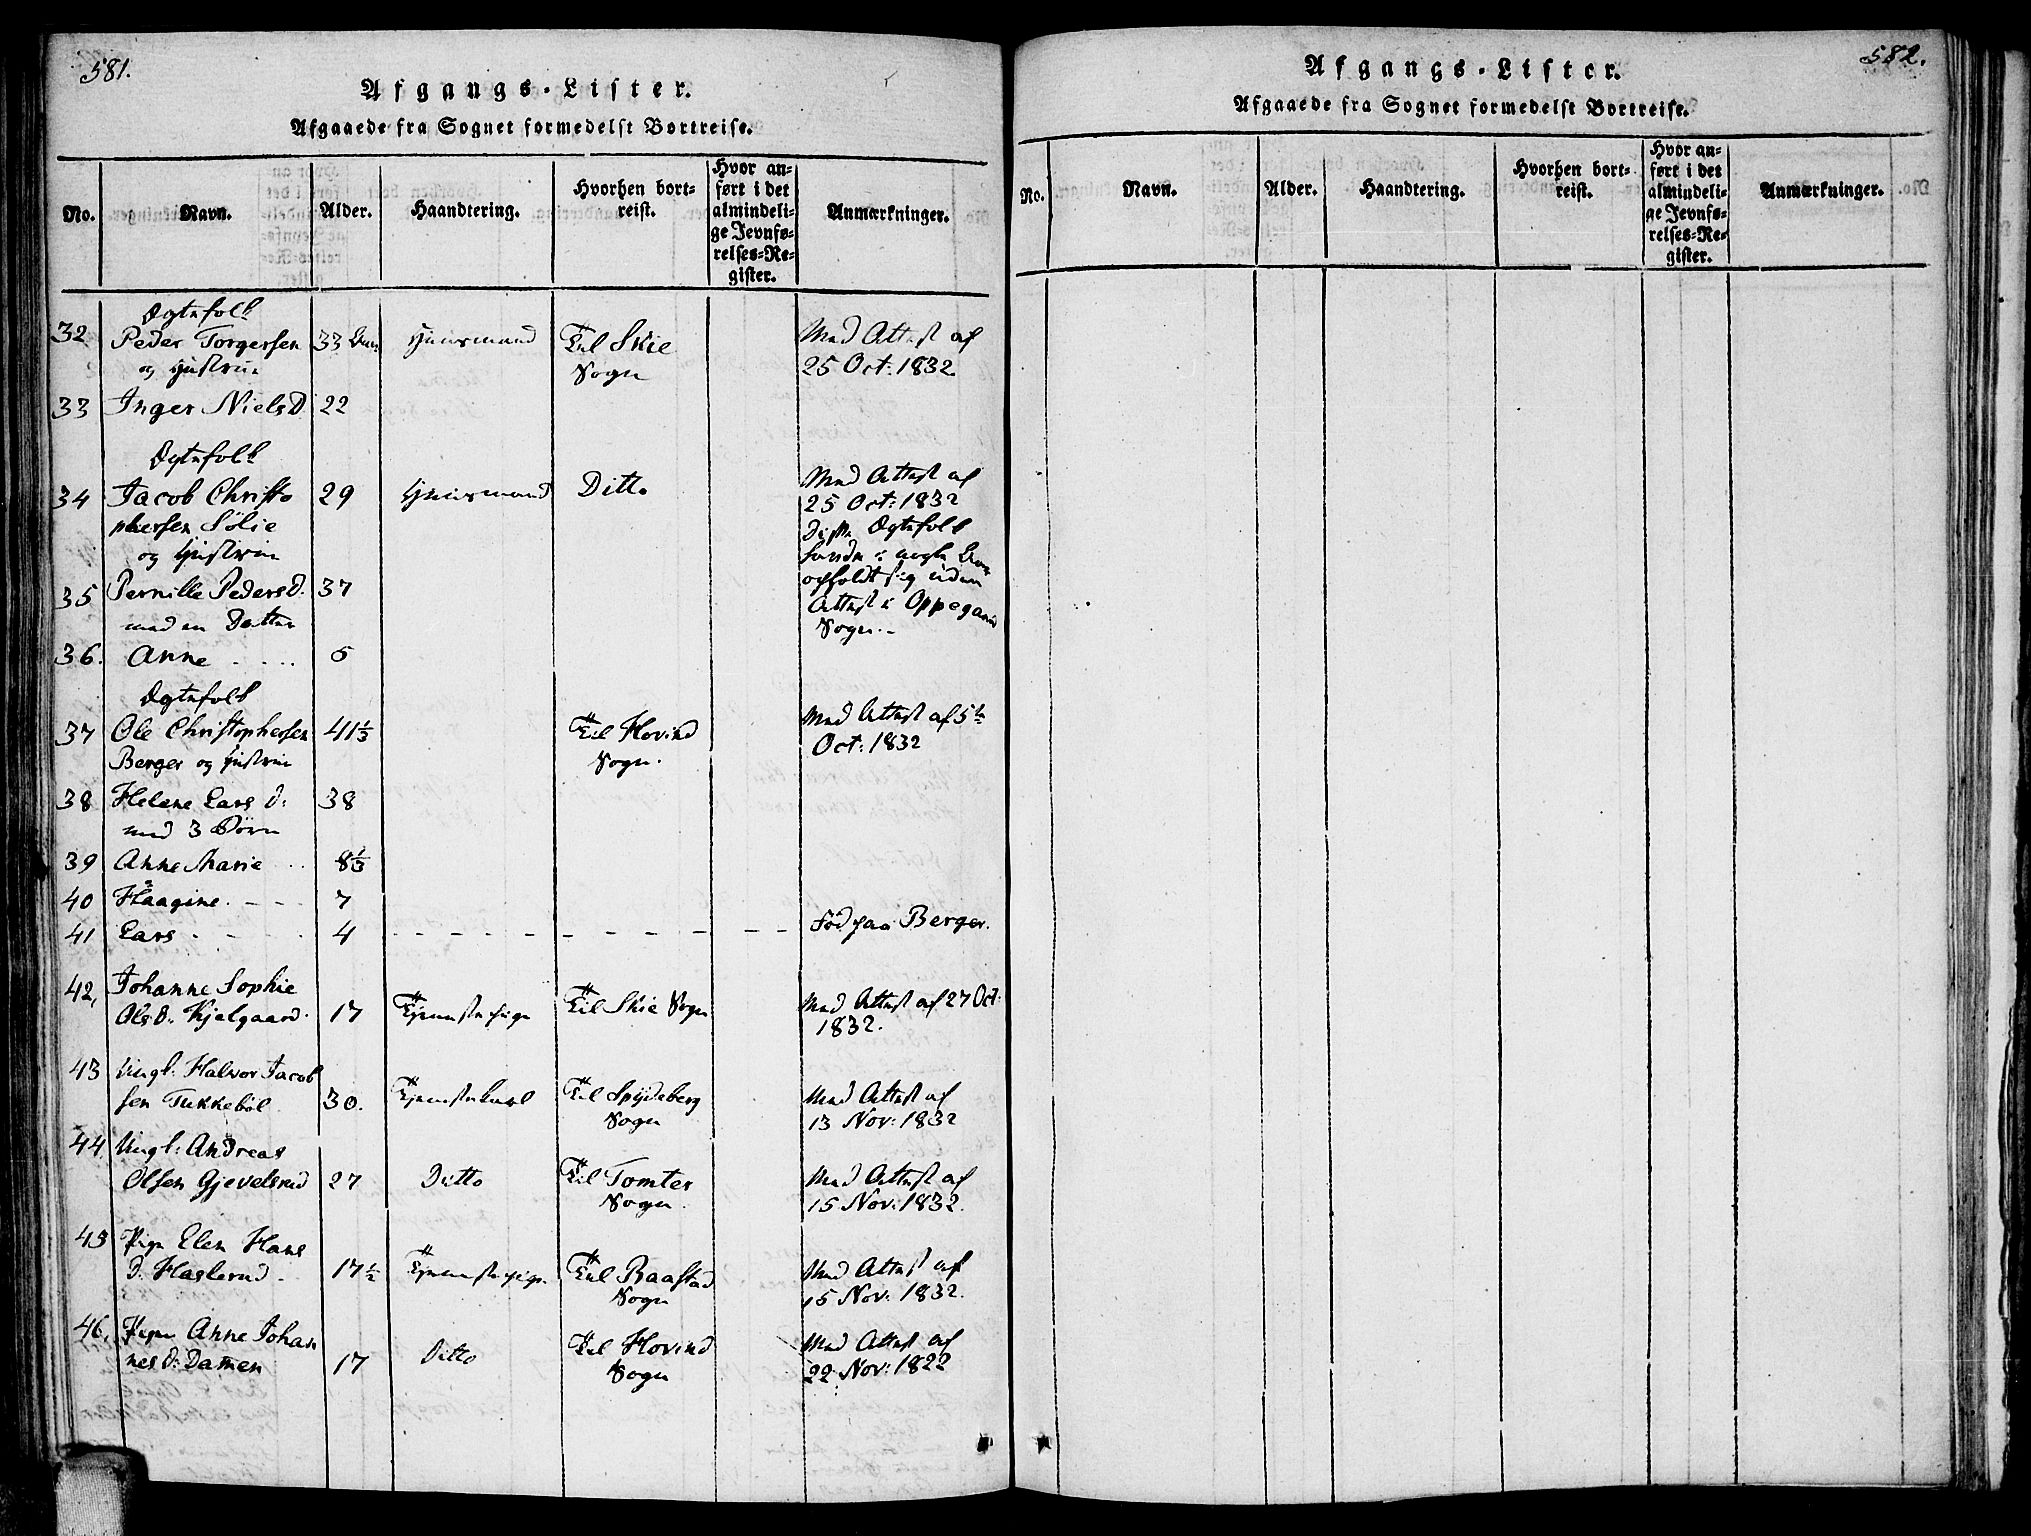 581.
Afgangs-Lister.
Afgaaede fra Sognet formedelst Bortreise.
No.
Navn.
Alder.
Haandtering.
Hvorhen bort-
reist.
Hvor an-
ført i det
almindeli-
ge Jevnfø-
relses-Re-
gister.
Anmærkninger.
Ægtefolk
32 Peder Torgersen 33 Husmand Til Skie Med Attest af
og Hustrue Sogn 25 Oct: 1832
33 Inger Niels D. 22
Ægtefolk
34 Jacob Christo 29 Huusmand Ditto Med Attest af
25 Oct: 1832
phersen Sölie Ægtefolk
og Hustrue
opholdt sig uden
35 Pernille Peders D. 37 Attest i Oppegaard
med en Datter Sogn.
36. Anne 5
Ægtefolk
37 Ole Christophersen 41⅓ Til Hovind Med Attest af 5te
Berger og Hustrue Sogn. Oct: 1832
38 Helene Lars D: 38
med 3 Börn
39 Anne Marie 8⅓
40 Haagine 7
41 Lars 4 Föd paa Berger.
42, Johanne Sophie
Ols D. Kjelgaard 17 Tjenestepige Til Skie Sogn Med Attest af 27 Oct:
1832.
43 Ungk: Halvor Jacob
sen Tukkeböl 30. Tjenestekarl Til Spydeberg Med Attest af
Sogn 13 Nov: 1832
44 Ungk: Andreas
Olsen Gjevelsrud 27 Ditto Til Tomter Med Attest af
Sogn 15 Nov: 1832.
45 Pige Elen Hans
D. Haslerud 17½ Tjenestepige Til Raastad Med Attest af
Sogn 15 Nov: 1832.
46, Pige Anne Johan
nes D: Dammen 17 Ditto Til Hovind Med Attest af
Sogn 22 Nov: 1822
582.
Afgangs-Lister.
Afgaaede fra Sognet formedelst Bortreise.
No.
Navn.
Alder.
Haandtering.
Hvorhen bort-
reist.
Hvor an-
ført i det
almindeli-
ge Jevnfø-
relses-Re-
gister.
Anmærkninger.